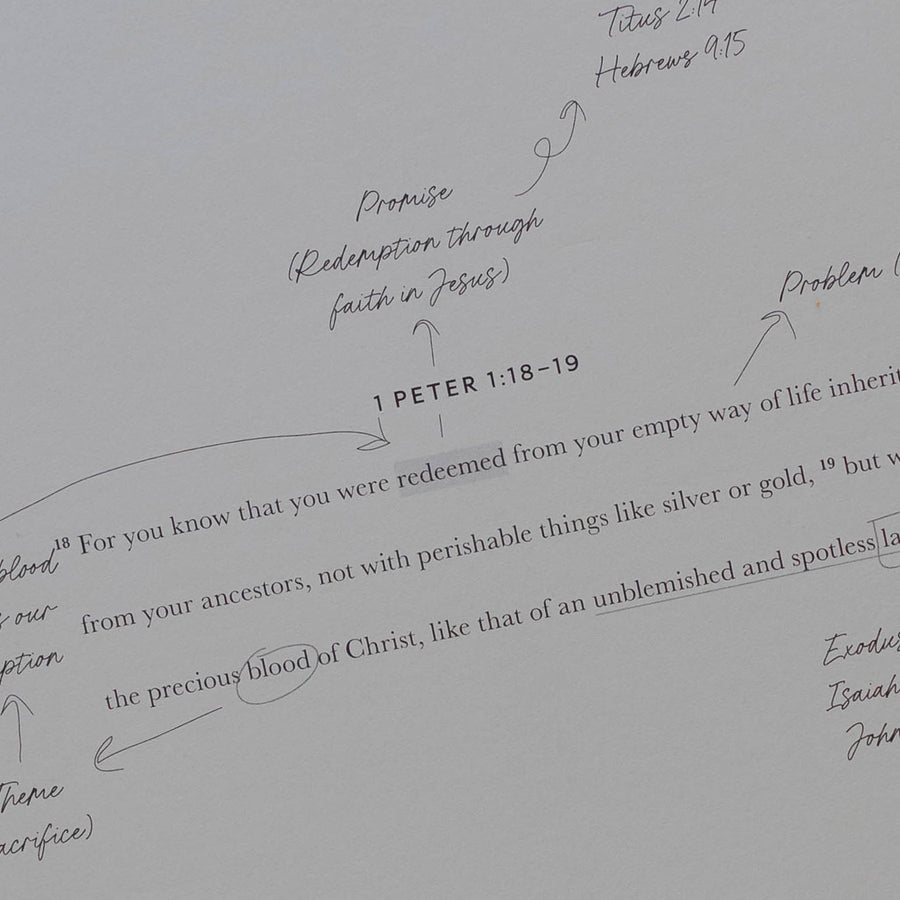 Titus 2:14
Hebrews 9:15
Promise
(Redemption through
faith in Jesus)
Problem (
1 PETER 1:18–19
18 For you know that you were redeemed from your empty way of life inherit
from your ancestors, not with perishable things like silver or gold, 19 but w
the precious blood of Christ, like that of an unblemished and spotless la
blood
s our
ption
Theme
acrifice)
Exodus
Isaiah
John